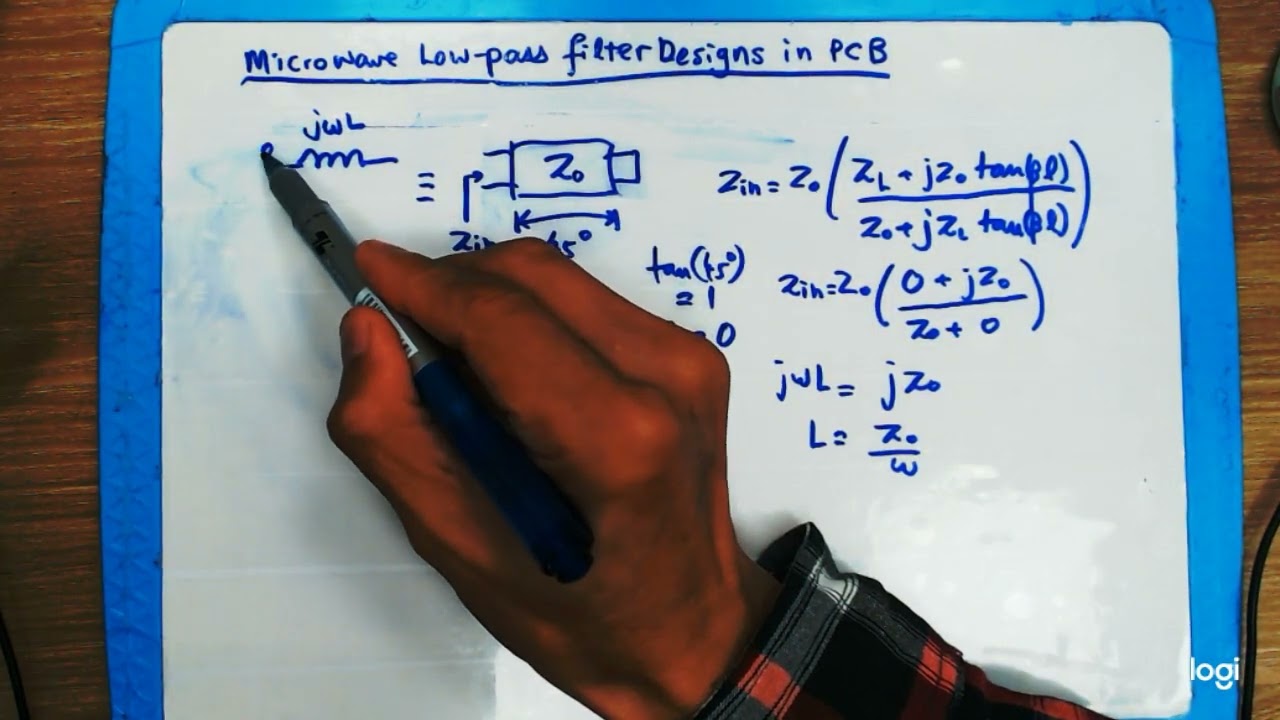 Microwave Low-pass filter Designs in PCB
jωL
≡ Z₀
Zin 45°
Zin = Z₀ ( (Z_L + jZ₀ tan(βl)) / (Z₀ + jZ_L tan(βl)) )
tan(45°)
= 1
= 0
Zin = Z₀ ( (0 + jZ₀) / (Z₀ + 0) )
jωL = jZ₀
L = Z₀ / ω
logi